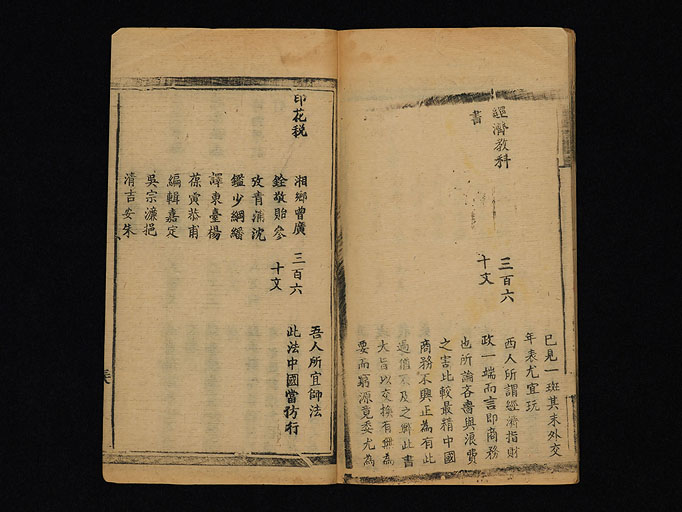 已見一斑其末外交
年表尤宜玩
經濟教科
書
三百六
十文
西人所謂經濟指財
政一端而言即商務
也所論各嗇與浪費
之害比較最精中國
商務不興正為有此
過
及之
此書
大旨以交換有無為
要而窮源竟委尤為
印花税
湘鄉曾廣
銓敬貽參
攷青浦沈
鑑少綱繙
譯東臺楊
葆寅恭甫
編輯嘉定
吳宗濂挹
清吉安朱
三百六
十文
吾人所宜師法
此法中國當仿行